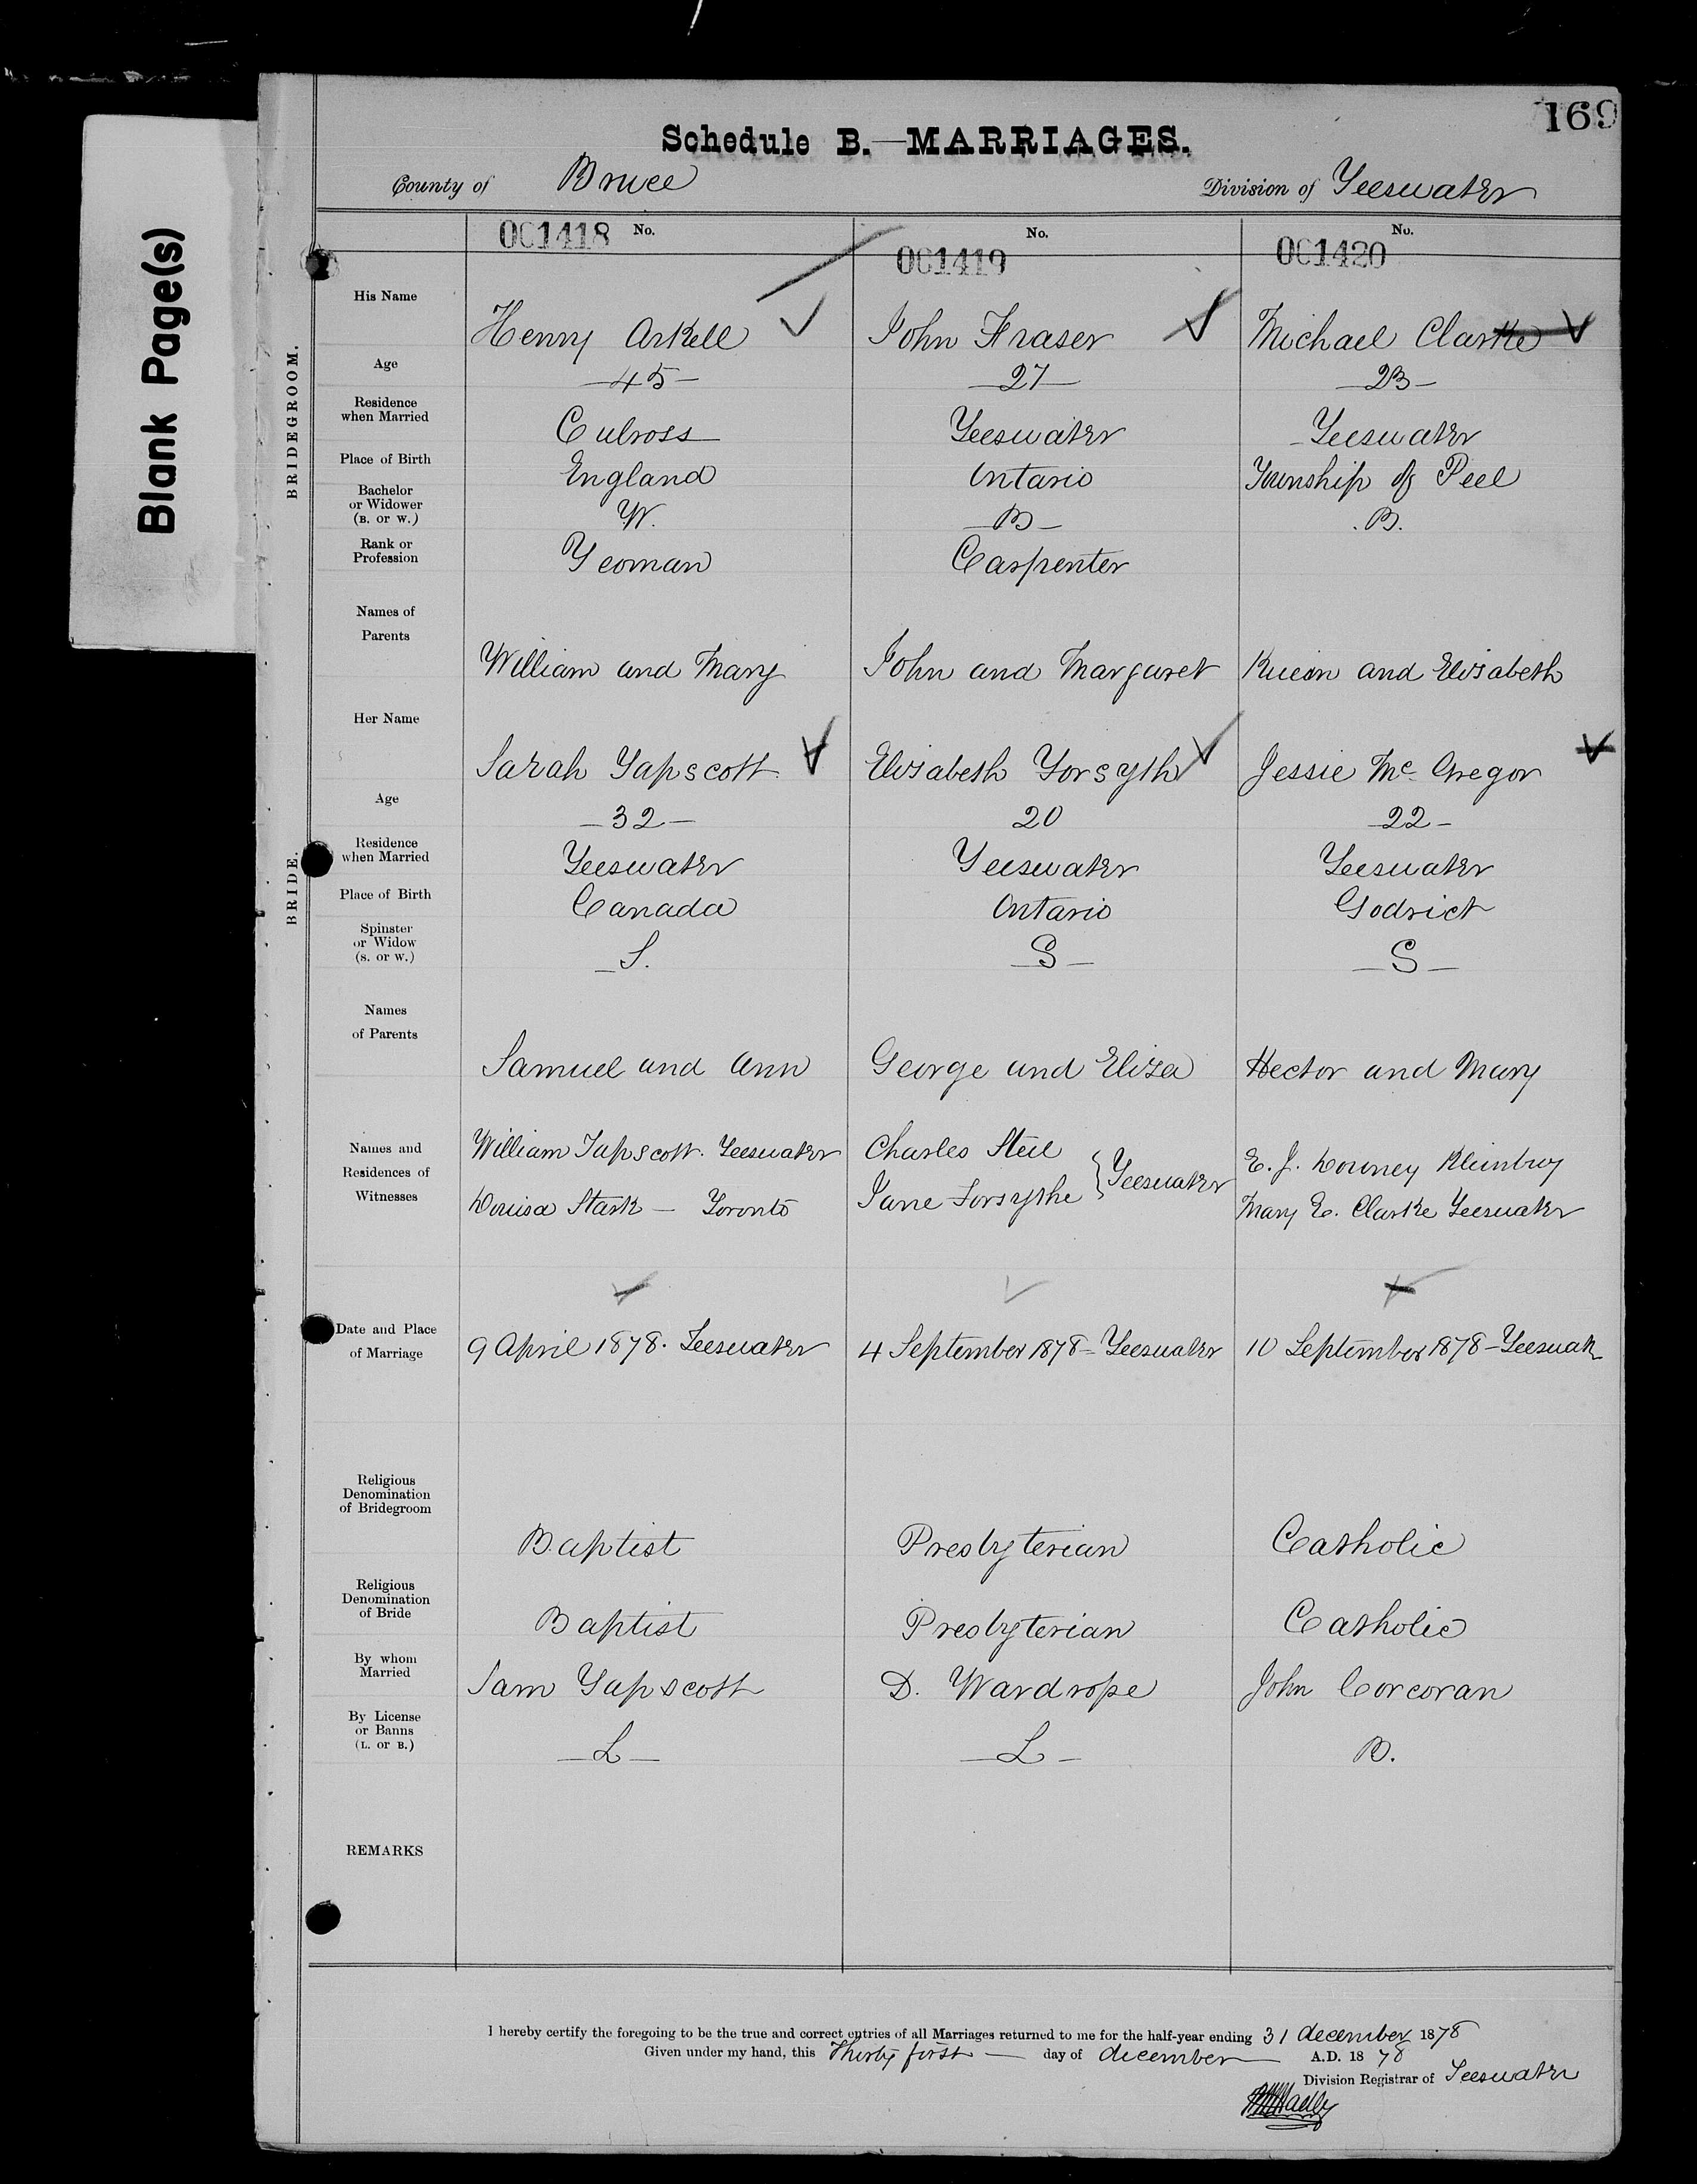 Blank Page(s)
169
Schedule B.—MARRIAGES.
County of Bruce Division of Teeswater
No. No. No.
001418 001419 001420
BRIDEGROOM.
His Name Henry Arkell John Fraser Michael Clarke
Age —45— —27— —23—
Residence when Married Culross Teeswater Teeswater
Place of Birth England Ontario Township of Peel
Bachelor or Widower (B. or W.) W. —B— B.
Rank or Profession Yeoman Carpenter
Names of Parents William and Mary John and Margaret and Elisabeth
BRIDE.
Her Name Sarah Tapscott Elisabeth Forsyth Jessie McGregor
Age —32— 20 —22—
Residence when Married Teeswater Teeswater Teeswater
Place of Birth Canada Ontario Godrich
Spinster or Widow (S. or W.) —S. —S— —S—
Names of Parents Samuel and Ann George and Eliza Hector and Mary
Names and Residences of Witnesses
William Tapscott. Teeswater Charles Steil E. J. Downey
Louisa Stark — Toronto Jane Forsythe } Teeswater Mary E. Clarke Teeswater
Date and Place of Marriage 9 April 1878. Teeswater 4 September 1878 – Teeswater 10 September 1878 – Teeswater
Religious Denomination of Bridegroom Baptist Presbyterian Catholic
Religious Denomination of Bride Baptist Presbyterian Catholic
By whom Married Sam Tapscott D. Wardrope John Corcoran
By License or Banns (L. or B.) —L— —L— B.
REMARKS
I hereby certify the foregoing to be the true and correct entries of all Marriages returned to me for the half-year ending 31 december 1878
Given under my hand, this Thirty first — day of december — A.D. 1878
Division Registrar of Teeswater